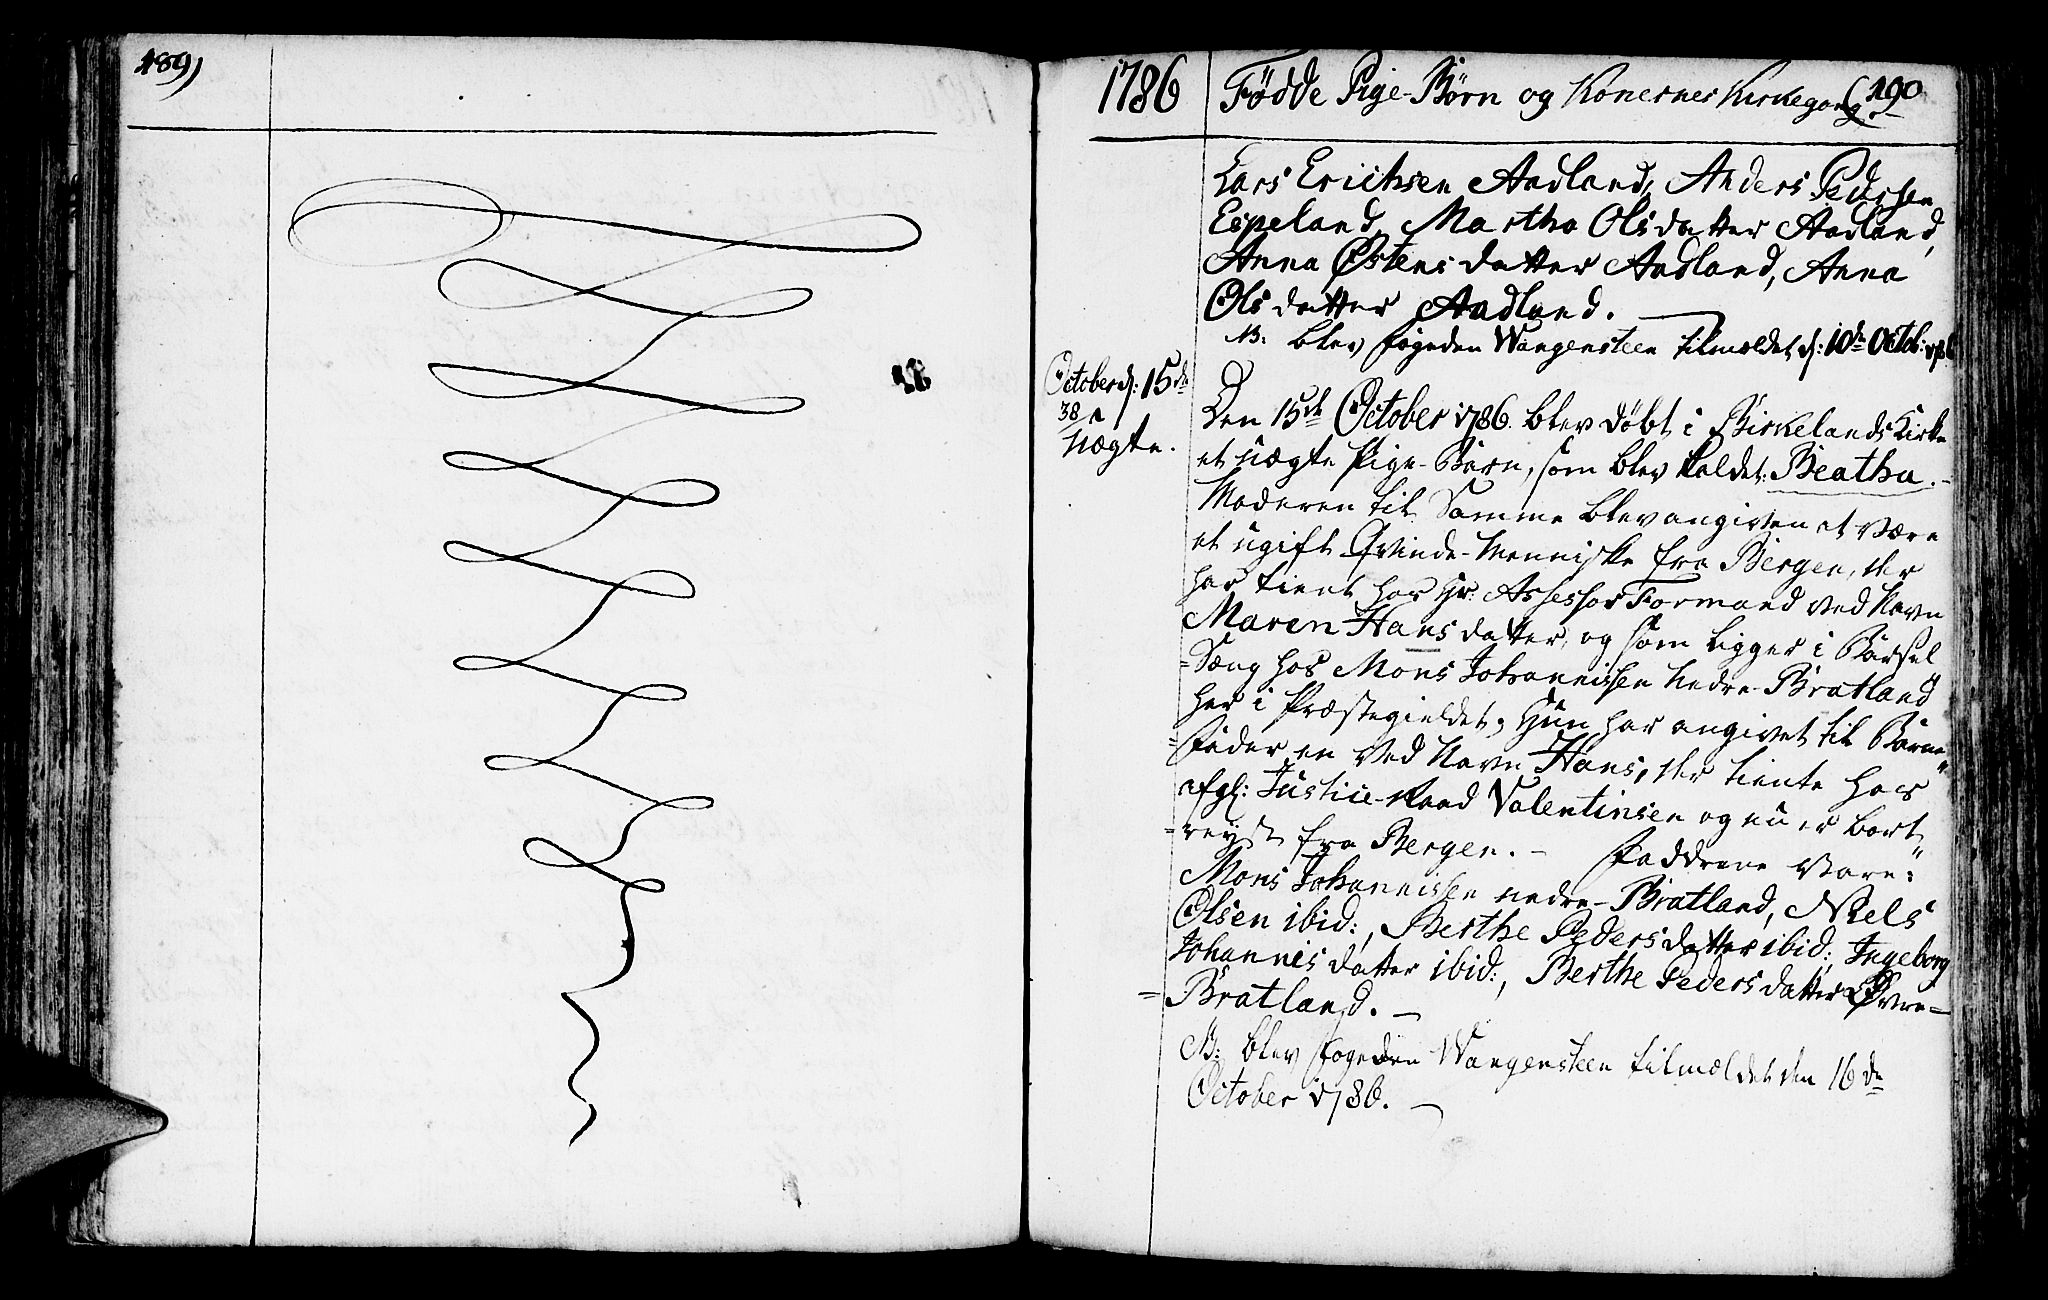 189)
1786 Födde Pige-Börn og Konernes Kirkegang (190
Lars Erichsen Aadland, Anders Pedersen
Espeland, Martha Olsdatter Aadland,
Anna Østensdatter Aadland, Anna
Olsdatter Aadland.
NB: blev fogeden Wangensteen tilmeldet d: 10de Octob: 1786.
October d: 15de
38
Uægte.
Den 15de October 1786. blev døbt i Birkelands Kirke
et Uægte Pige-Barn, som blev kaldet: Beatha.-
Moderen til Samme blev angiven at være
et ugift Qvinde-Menniske fra Bergen, der
har tient hos Hr: Assessor Formand ved Navn
Maren Hansdatter, og som ligger i Barsel
=Seng hos Mons Johannissen Nedre-Bratland
her i Præstegieldet; Hun har angivet til Barne-
=Fader en ved Navn Hans, der tiente hos
afgl: Justice-Raad Valentinsen og nu er bort
=reyst fra Bergen.- Faddrene vare:
Mons Johannissen nedre-Bratland, Niels
Olsen ibid:, Berthe Pedersdatter ibid:, Ingeborg
Johannisdatter ibid:, Berthe Pedersdatter Øvre=
=Bratland.-
NB: blev fogeden Wangensteen tilmeldet den 16de
October 1786.-